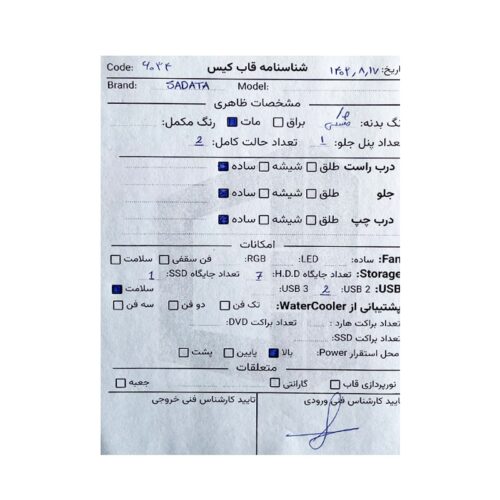 شناسنامه قاب کیس Code: ۹۰۳۴
اریخ: ۱۴۰۲,۸,۱۷
Brand: SADATA Model:
مشخصات ظاهری
نگ بدنه: براق مات رنگ مکمل:
عداد پنل جلو: 1 تعداد حالت کامل: 2
درب راست طلق شیشه ساده
جلو طلق شیشه ساده
درب چپ طلق شیشه ساده
امکانات
Fan ساده: LED: RGB: فن سقفی سلامت
Storage: تعداد جایگاه H.D.D: 7 تعداد جایگاه SSD: 1
USB: USB 2: 2 USB 3: سلامت
پشتیبانی از WaterCooler: تک فن دو فن سه فن
تعداد براکت هارد: تعداد براکت DVD:
تعداد براکت SSD:
محل استقرار Power: بالا پایین پشت
متعلقات
نورپردازی قاب گارانتی جعبه
تایید کارشناس فنی ورودی تایید کارشناس فنی خروجی